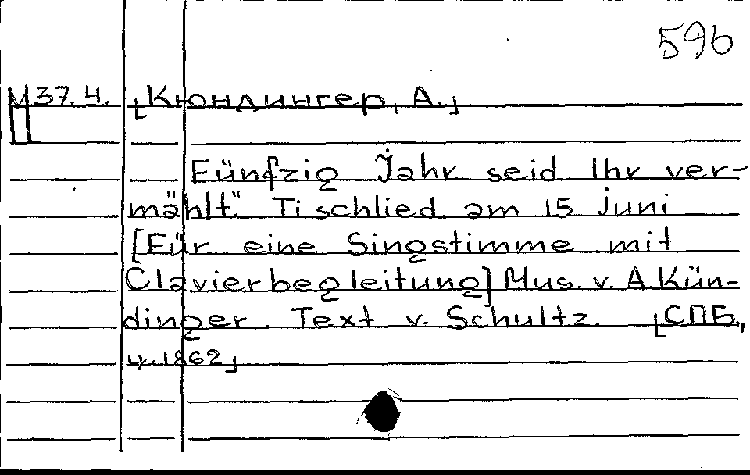 596
М37.4. [Кюндингер, А.]
Fünfzig Jahr seid Ihr ver-
mählt". Tischlied am 15 Juni
[Für eine Singstimme mit
Clavierbegleitung] Mus. v. A Kün-
dinger. Text v. Schultz. [СПБ,
ц.1862]